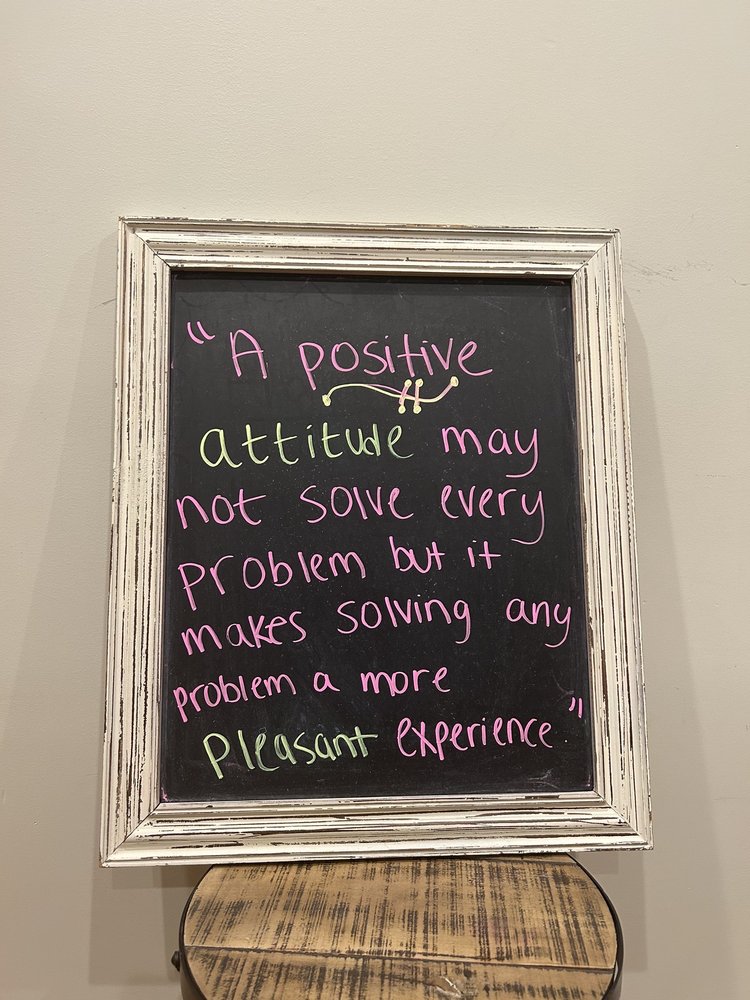 "A positive
attitude may
not solve every
problem but it
makes solving any
problem a more
Pleasant experience"